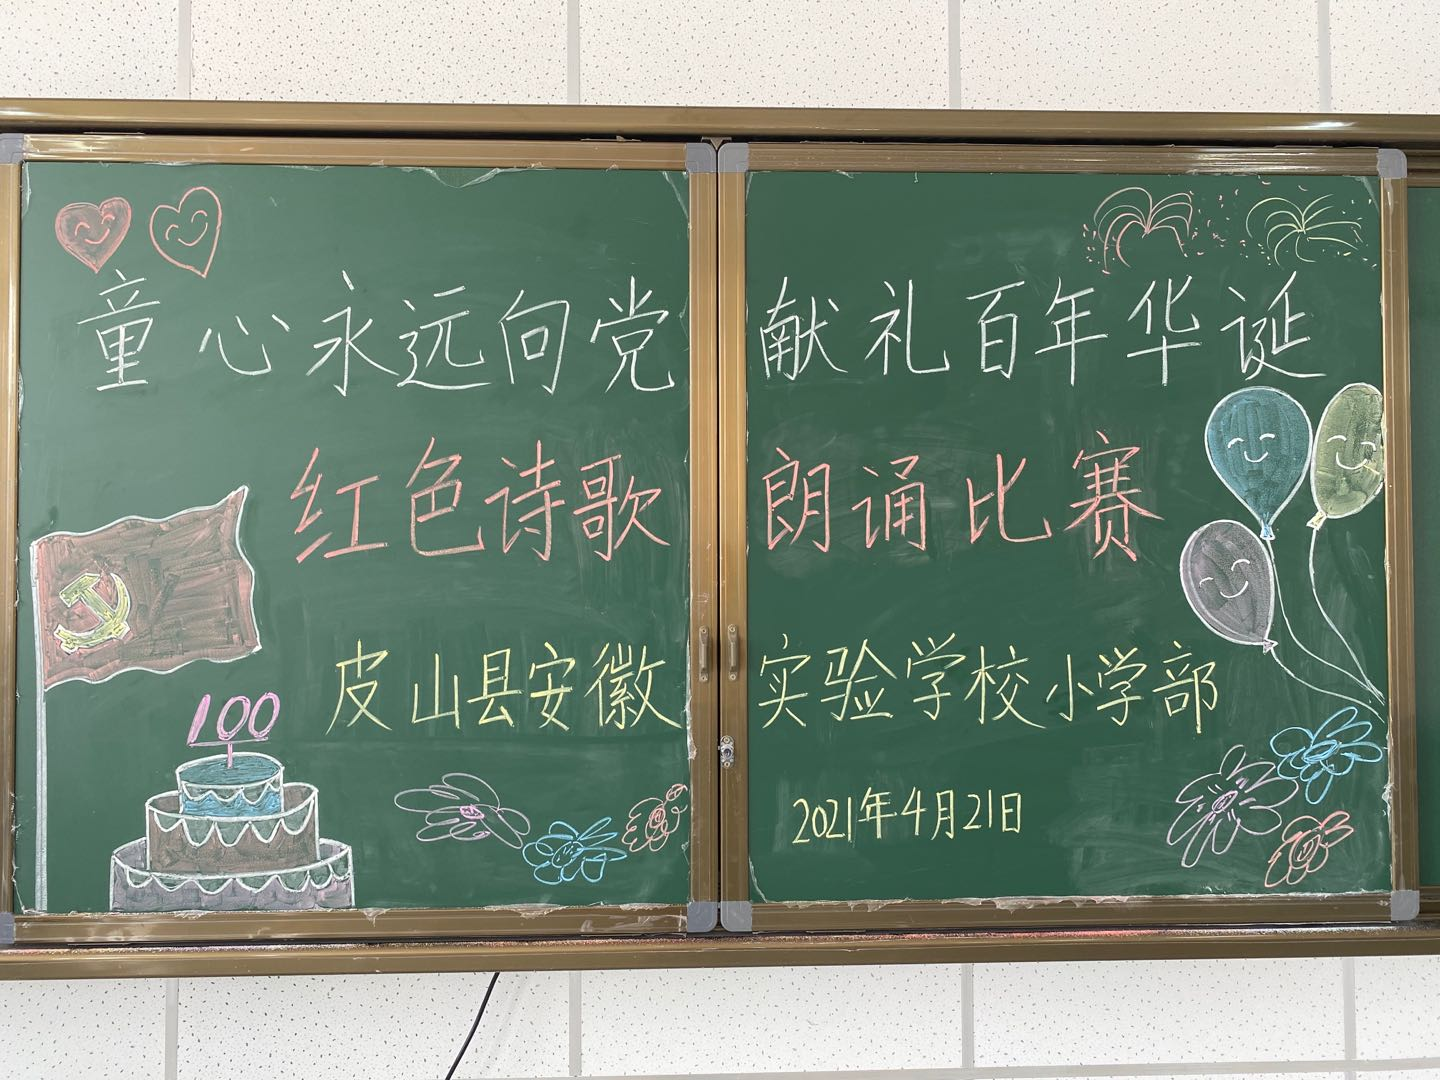 童心永远向党 献礼百年华诞
红色诗歌 朗诵比赛
皮山县安徽 实验学校小学部
100
2021年4月21日